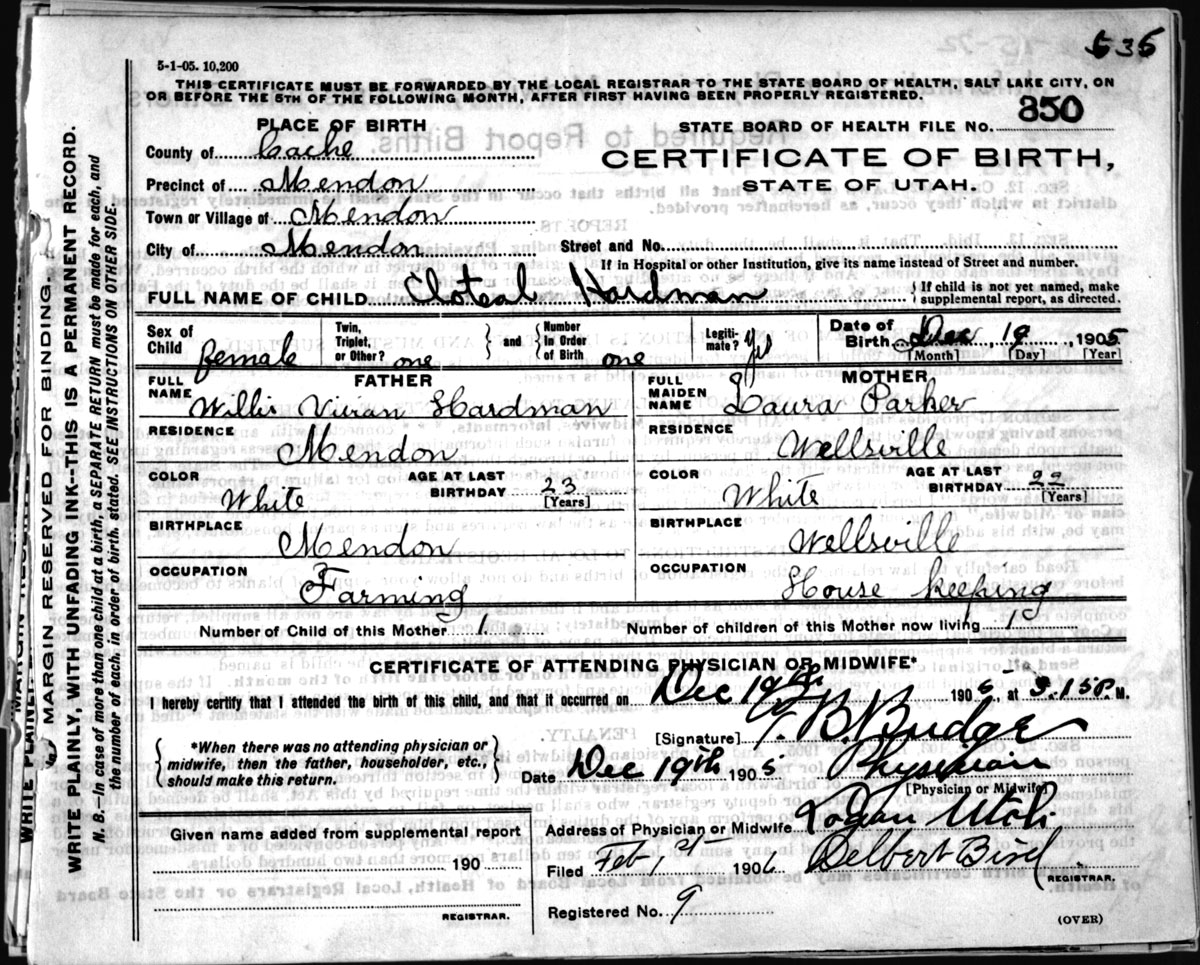 535
5-1-05. 10,200
THIS CERTIFICATE MUST BE FORWARDED BY THE LOCAL REGISTRAR TO THE STATE BOARD OF HEALTH, SALT LAKE CITY, ON
OR BEFORE THE 5TH OF THE FOLLOWING MONTH, AFTER FIRST HAVING BEEN PROPERLY REGISTERED.
PLACE OF BIRTH
STATE BOARD OF HEALTH FILE NO. 350
County of Cache
CERTIFICATE OF BIRTH,
Precinct of Mendon
STATE OF UTAH.
Town or Village of Mendon
City of Mendon
Street and No.
If in Hospital or other Institution, give its name instead of Street and number.
FULL NAME OF CHILD Cloteal Hardman
If child is not yet named, make
supplemental report, as directed.
Sex of Child female
Twin, Triplet, or Other? one
and Number in Order of Birth one
Legiti-mate? Yes
Date of Birth Dec 19, 1905
[Month] [Day] [Year]
FATHER
FULL NAME Willis Vivian Hardman
RESIDENCE Mendon
COLOR White
AGE AT LAST BIRTHDAY 23 [Years]
BIRTHPLACE Mendon
OCCUPATION Farming
MOTHER
FULL MAIDEN NAME Laura Parker
RESIDENCE Wellsville
COLOR White
AGE AT LAST BIRTHDAY 22 [Years]
BIRTHPLACE Wellsville
OCCUPATION House keeping
Number of Child of this Mother 1
Number of children of this Mother now living 1
CERTIFICATE OF ATTENDING PHYSICIAN OR MIDWIFE*
I hereby certify that I attended the birth of this child, and that it occurred on Dec 19th 1905, at 3.15 P. M.
*When there was no attending physician or
midwife, then the father, householder, etc.,
should make this return.
[Signature] B. Budge
Date Dec 19th 1905 Physician
[Physician or Midwife]
Given name added from supplemental report
190
REGISTRAR.
Address of Physician or Midwife Logan Utah
Filed Feb, 1906 Delbert Bird
REGISTRAR.
Registered No. 9
(OVER)
MARGIN RESERVED FOR BINDING.
WRITE PLAINLY, WITH UNFADING INK--THIS IS A PERMANENT RECORD.
N. B.--In case of more than one child at a birth, a SEPARATE RETURN must be made for each, and
the number of each, in order of birth, stated. SEE INSTRUCTIONS ON OTHER SIDE.